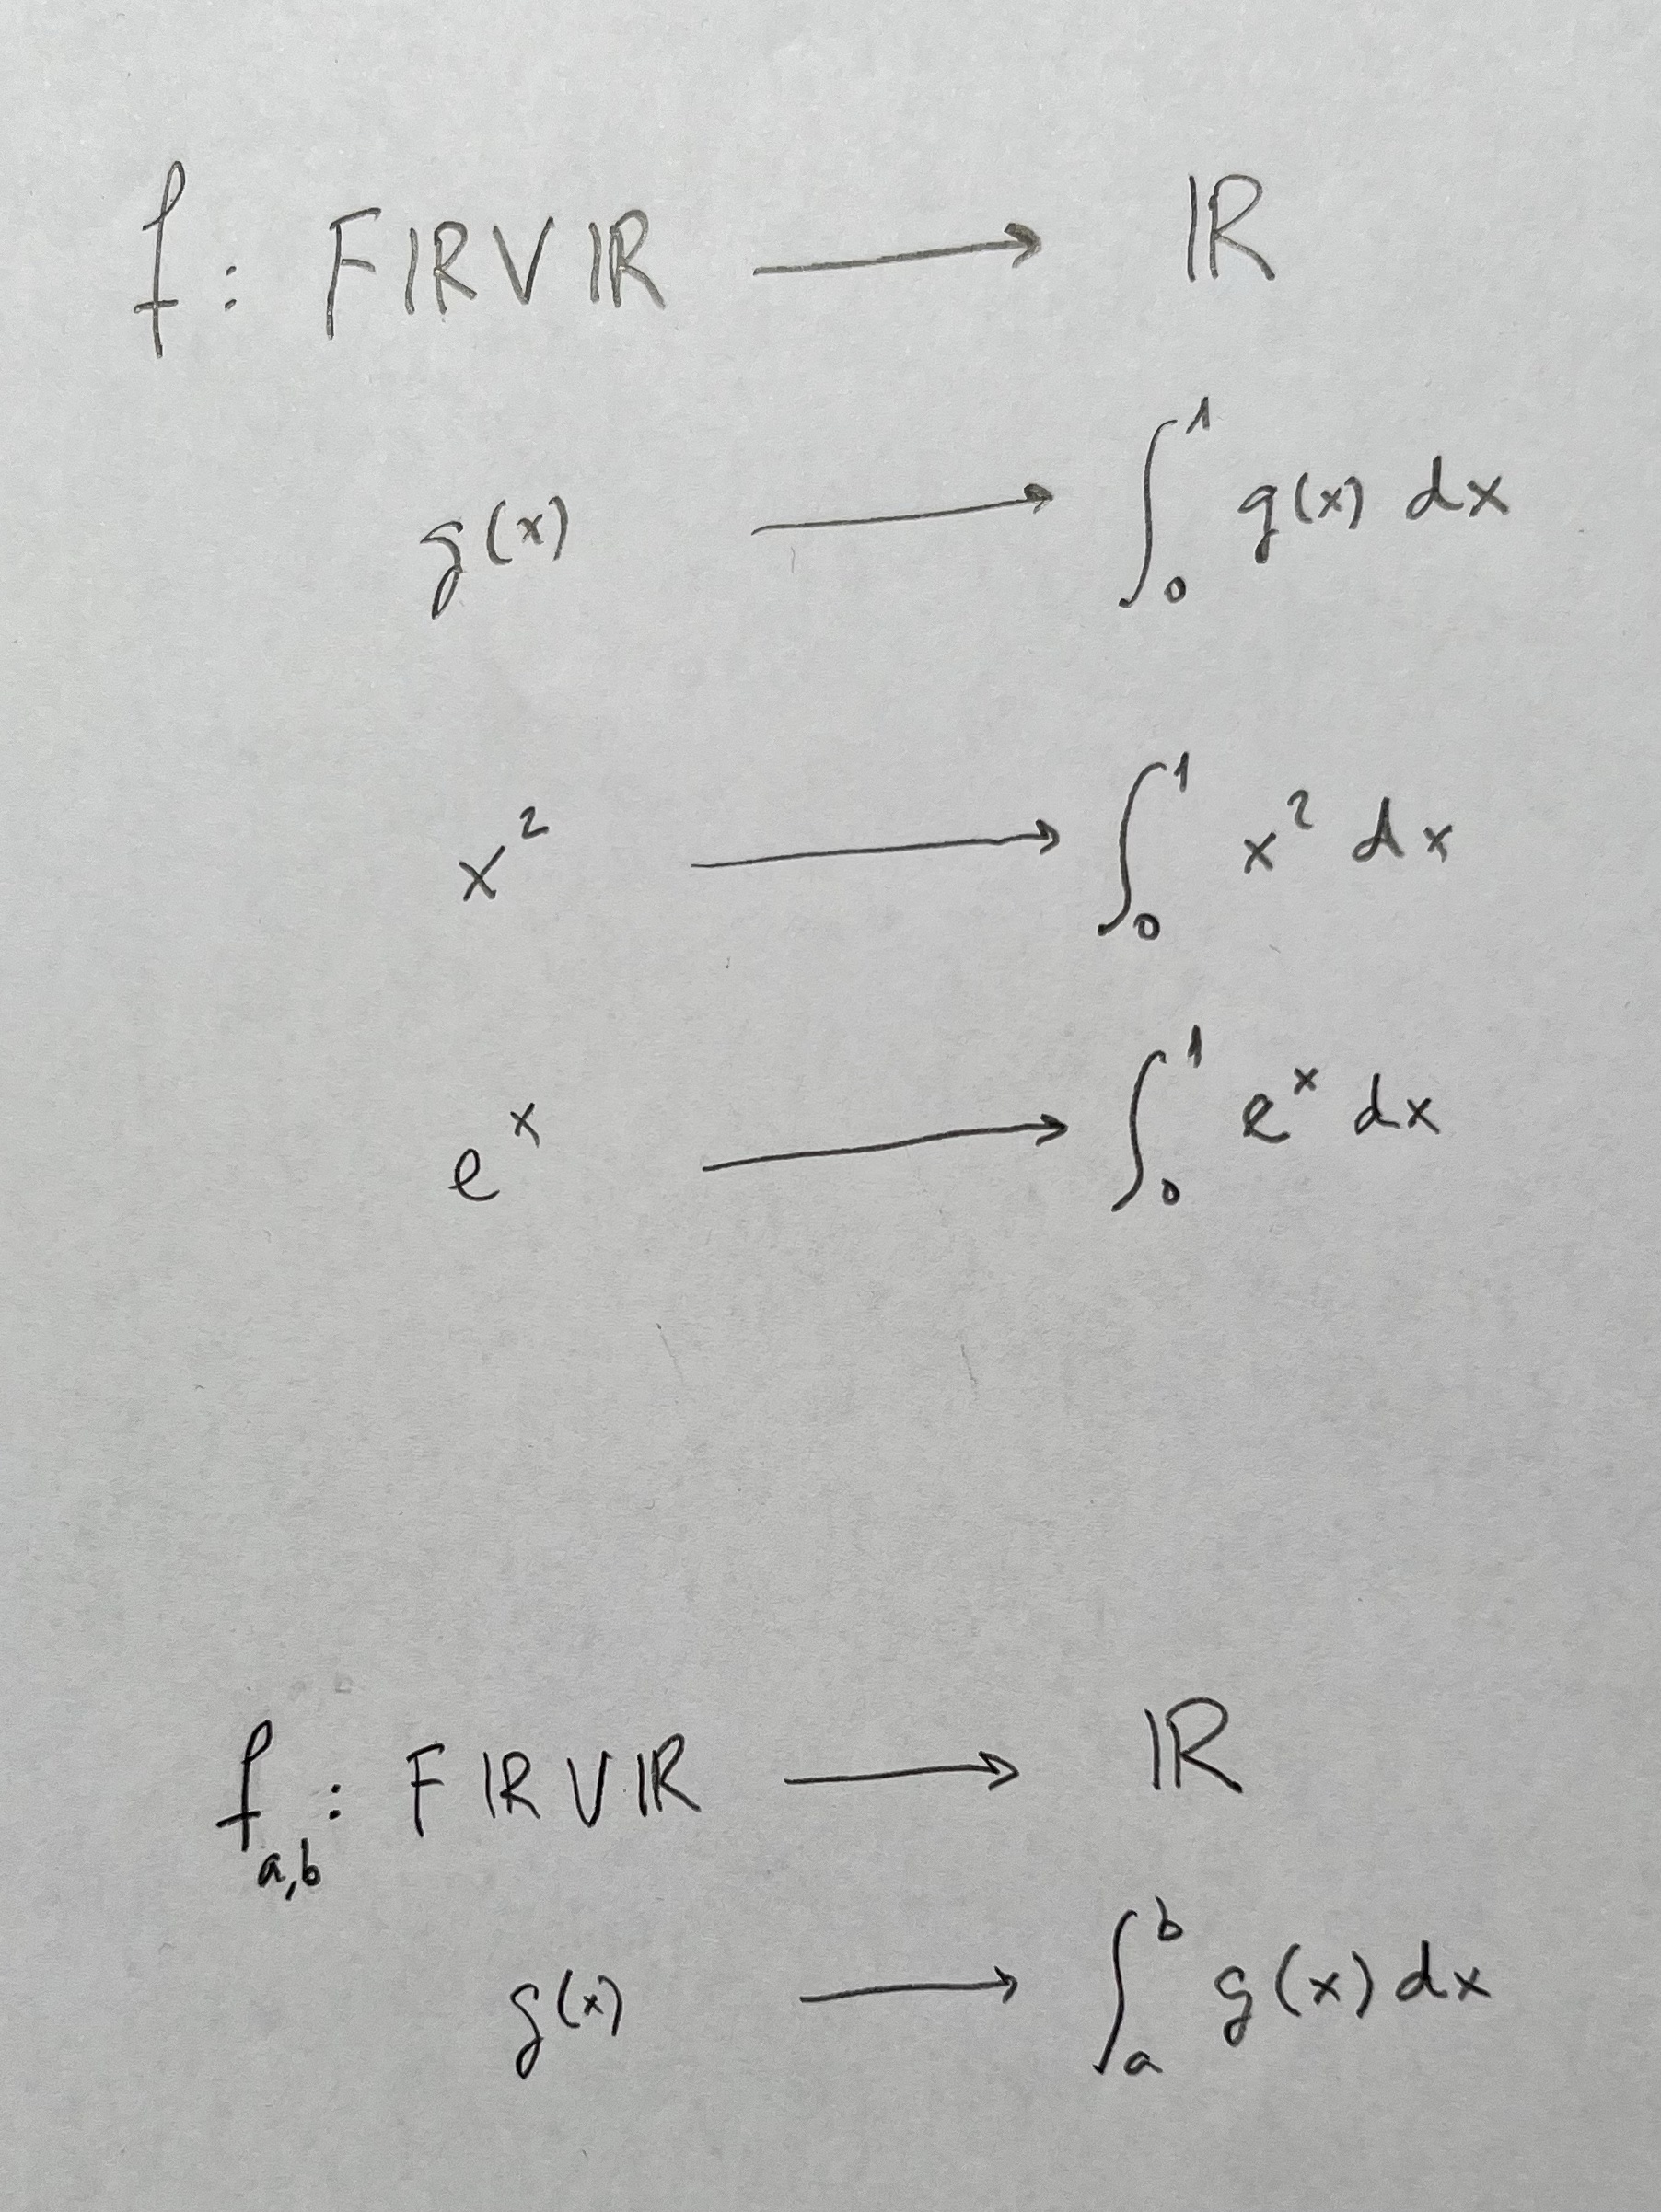 f: FℝVℝ ⟶ ℝ
g(x) ⟶ ∫₀¹ g(x) dx
x² ⟶ ∫₀¹ x² dx
eˣ ⟶ ∫₀¹ eˣ dx
f_{a,b}: FℝVℝ ⟶ ℝ
g(x) ⟶ ∫ₐᵇ g(x) dx